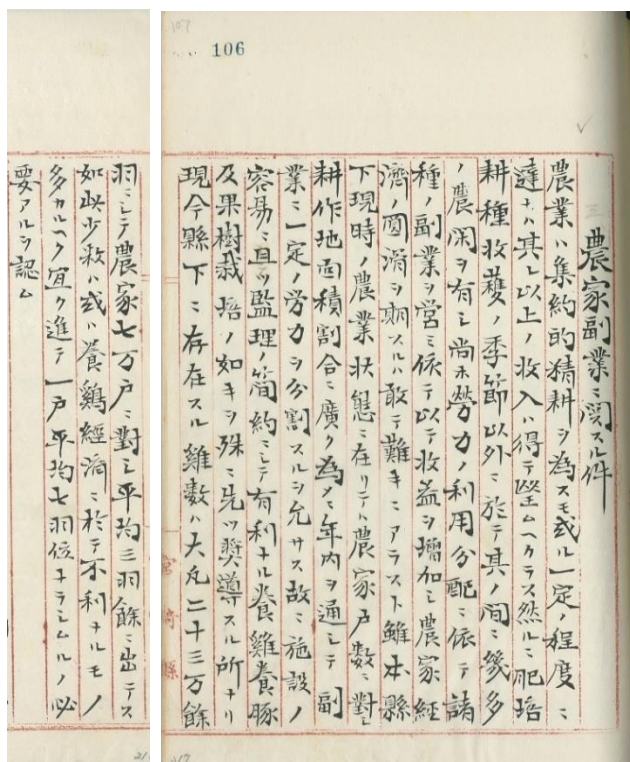 106
農家副業ニ関スル件
農業ハ集約的精耕ヲ為スモ或ル一定ノ程度ニ
達セハ其レ以上ノ收入ハ得テ望ムヘクラス然ルニ肥培
耕種收穫ノ季節以外ニ於テ其ノ間ニ幾多
ノ農閑ヲ有シ尚ホ勞力ノ利用分配ニ依テ諸
種ノ副業ヲ営ミ依テ以テ收益ヲ増加シ農家経
濟ノ圓滑ヲ期スルハ敢テ難キニアラスト雖本縣
下現時ノ農業状態ニ在リテハ農家戸數ニ對シ
耕作地面積割合ニ廣ク為メニ年内ヲ通シテ副
業ニ一定ノ労力ヲ分割スルヲ允サス故ニ施設ノ
容易ニ且ツ監理ノ簡約ニシテ有利ナル養雞養豚
及果樹栽培ノ如キヲ殊ニ先ツ奨導スル所ナリ
現今縣下ニ存在スル雞數ハ大凡二十三万餘
宮崎縣
羽ニシテ農家七万戸ニ對シ平均三羽餘ニ出テス
如此少数ハ或ハ養鷄経済ニ於テ不利ナルモノ
多カルヘク宜ク進テ一戸平均七羽位ナラシムルノ必
要アルヲ認ム